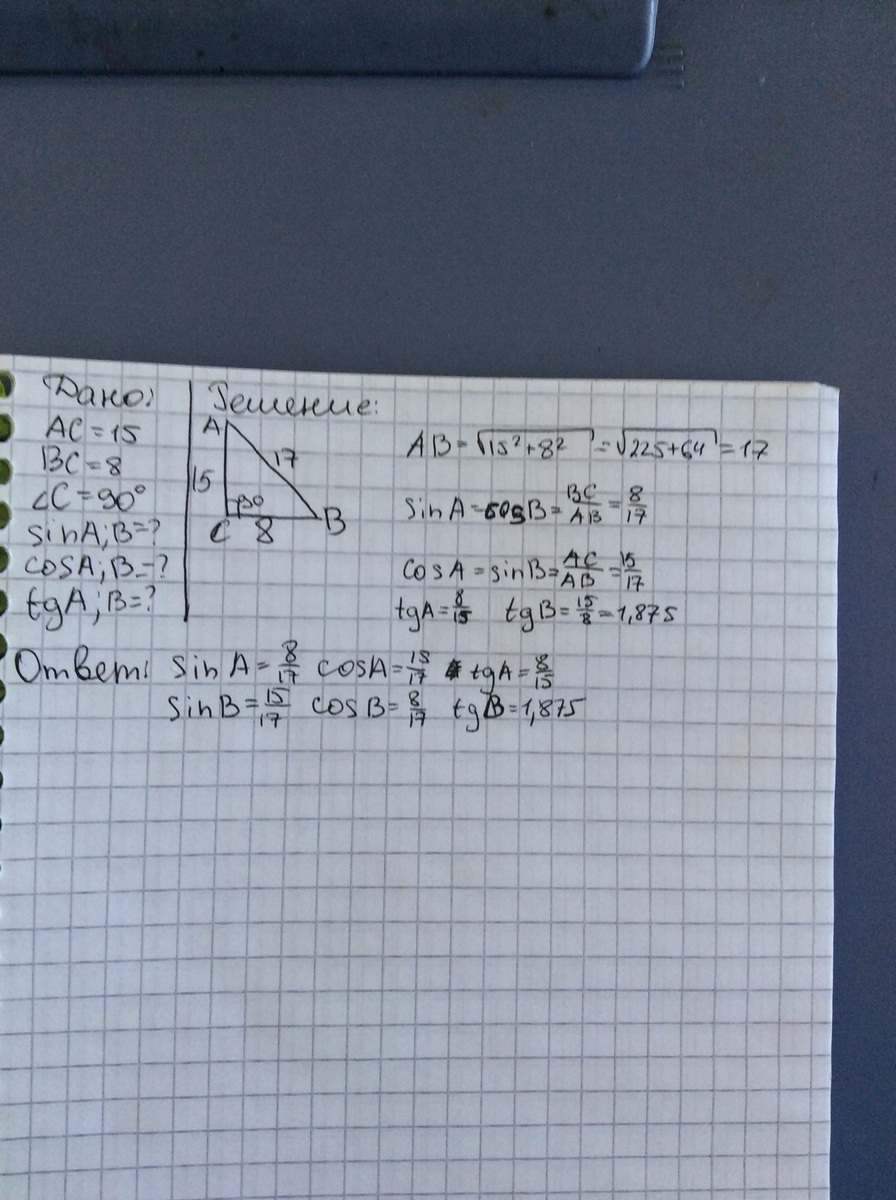 Дано:
AC=15
BC=8
∠C=90°
sinA;B=?
cosA;B=?
tgA;B=?
Решение:
A
17
15
90
C 8 B
AB=√15²+8² =√225+64 =17
sinA=cosB=BC/AB=8/17
cosA=sinB=AC/AB=15/17
tgA=8/15 tgB=15/8=1,875
Ответ: sinA=8/17 cosA=15/17 tgA=8/15
sinB=15/17 cosB=8/17 tgB=1,875